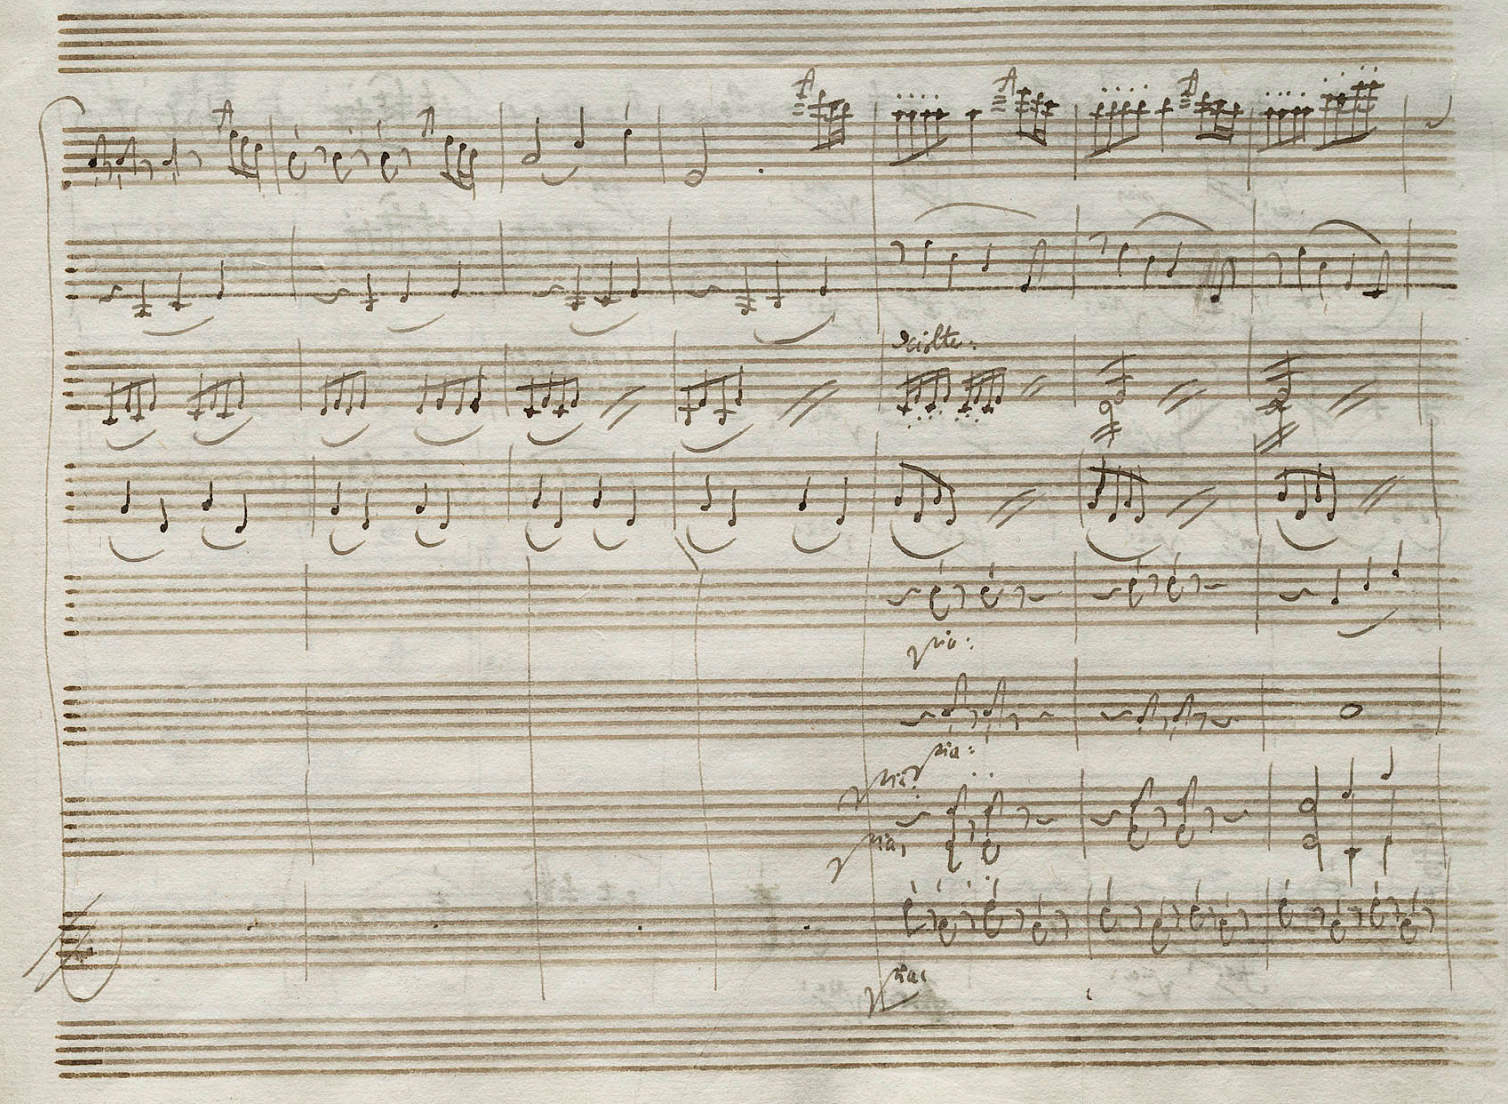 sciolte:
pia:
pia:
pia:
pia,
pia: